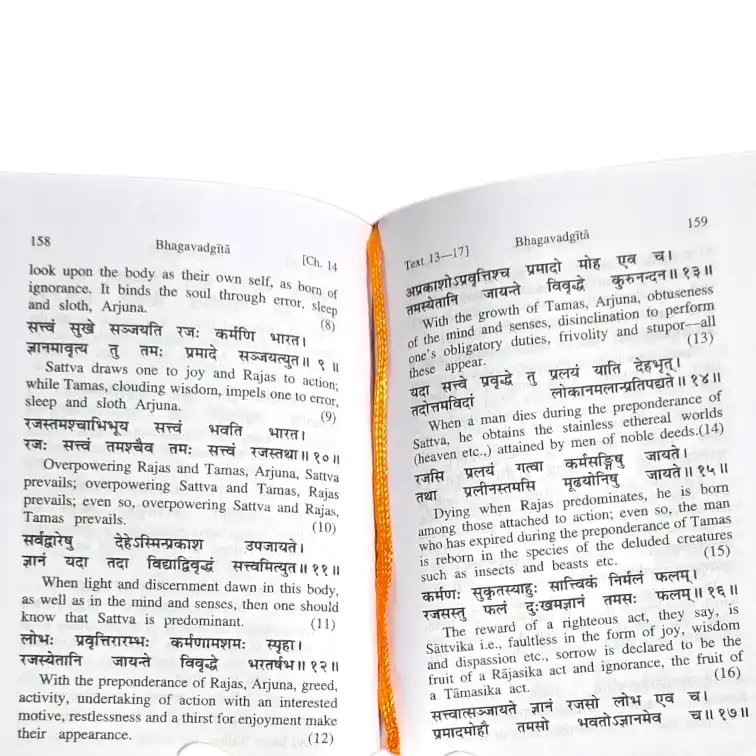 158
Bhagavadgītā
[Ch. 14
look upon the body as their own self, as born of
ignorance. It binds the soul through error, sleep
and sloth, Arjuna.
(8)
सत्त्वं सुखे सञ्जयति रजः कर्मणि भारत।
ज्ञानमावृत्य तु तमः प्रमादे सञ्जयत्युत॥ ९ ॥
Sattva draws one to joy and Rajas to action;
while Tamas, clouding wisdom, impels one to error,
sleep and sloth Arjuna.
(9)
रजस्तमश्चाभिभूय सत्त्वं भवति भारत।
रजः सत्त्वं तमश्चैव तमः सत्त्वं रजस्तथा॥ १०॥
Overpowering Rajas and Tamas, Arjuna, Sattva
prevails; overpowering Sattva and Tamas, Rajas
prevails; even so, overpowering Sattva and Rajas,
Tamas prevails.
(10)
सर्वद्वारेषु देहेऽस्मिन्प्रकाश उपजायते।
ज्ञानं यदा तदा विद्याद्विवृद्धं सत्त्वमित्युत॥ ११॥
When light and discernment dawn in this body,
as well as in the mind and senses, then one should
know that Sattva is predominant. (11)
लोभः प्रवृत्तिरारम्भः कर्मणामशमः स्पृहा।
रजस्येतानि जायन्ते विवृद्धे भरतर्षभ॥ १२॥
With the preponderance of Rajas, Arjuna, greed,
activity, undertaking of action with an interested
motive, restlessness and a thirst for enjoyment make
their appearance. (12)
Text 13—17]
Bhagavadgītā
159
अप्रकाशोऽप्रवृत्तिश्च प्रमादो मोह एव च।
तमस्येतानि जायन्ते विवृद्धे कुरुनन्दन॥ १३॥
With the growth of Tamas, Arjuna, obtuseness
of the mind and senses, disinclination to perform
one's obligatory duties, frivolity and stupor—all
these appear. (13)
यदा सत्त्वे प्रवृद्धे तु प्रलयं याति देहभृत्।
तदोत्तमविदां लोकानमलान्प्रतिपद्यते॥ १४॥
When a man dies during the preponderance of
Sattva, he obtains the stainless ethereal worlds
(heaven etc.,) attained by men of noble deeds.(14)
रजसि प्रलयं गत्वा कर्मसङ्गिषु जायते।
तथा प्रलीनस्तमसि मूढयोनिषु जायते॥ १५॥
Dying when Rajas predominates, he is born
among those attached to action; even so, the man
who has expired during the preponderance of Tamas
is reborn in the species of the deluded creatures
such as insects and beasts etc. (15)
कर्मणः सुकृतस्याहुः सात्त्विकं निर्मलं फलम्।
रजसस्तु फलं दुःखमज्ञानं तमसः फलम्॥ १६॥
The reward of a righteous act, they say, is
Sāttvika i.e., faultless in the form of joy, wisdom
and dispassion etc., sorrow is declared to be the
fruit of a Rājasika act and ignorance, the fruit of
a Tāmasika act. (16)
सत्त्वात्सञ्जायते ज्ञानं रजसो लोभ एव च।
प्रमादमोहौ तमसो भवतोऽज्ञानमेव च॥ १७॥